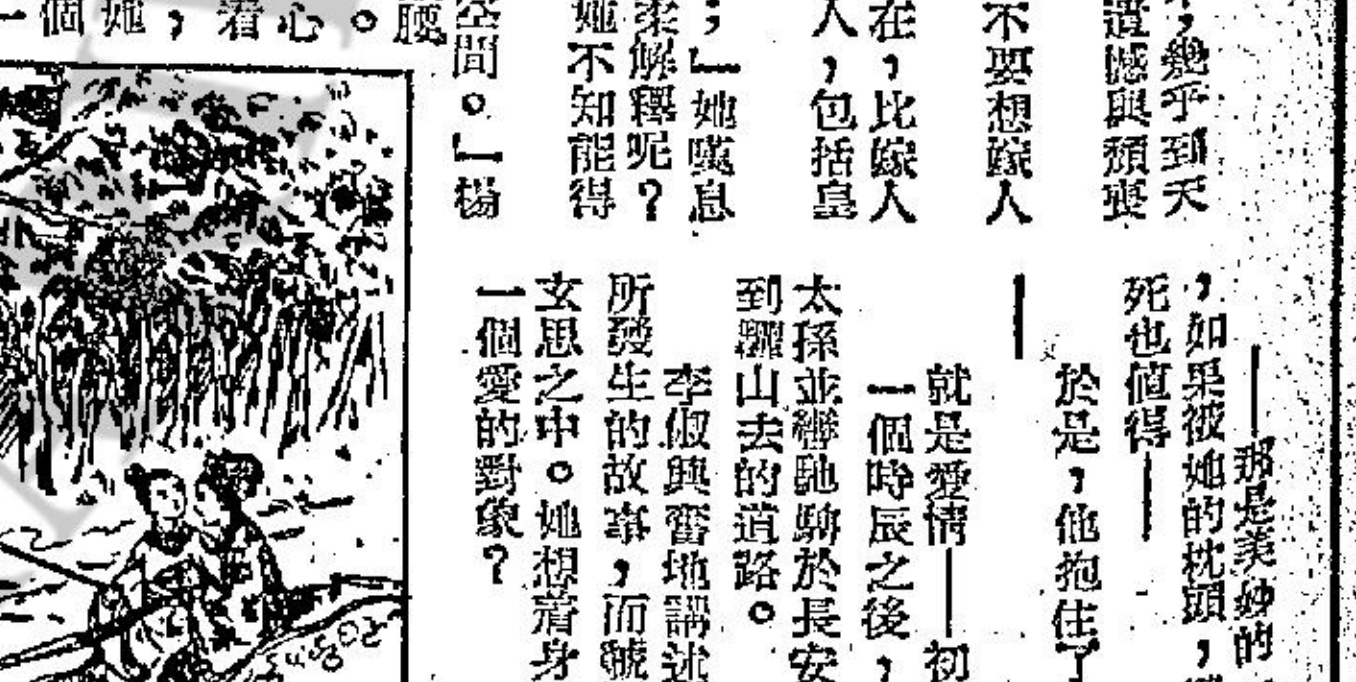 ，幾乎到天
遺憾與頹喪
不要想嫁人
在，比嫁人
人，包括皇
；」她嘆息
柔解釋呢？
她不知能得
空間。」楊
腰
心。
着
，
她
個
一
——那是美妙的
，如果被她的枕頭，
死也值得——
於是，他抱住了
——
就是愛情——初
一個時辰之後，
太孫並轡馳騁於長安
到驪山去的道路。
李俶興奮地講述
所發生的故事，而虢
玄思之中。她想着身
一個愛的對象？